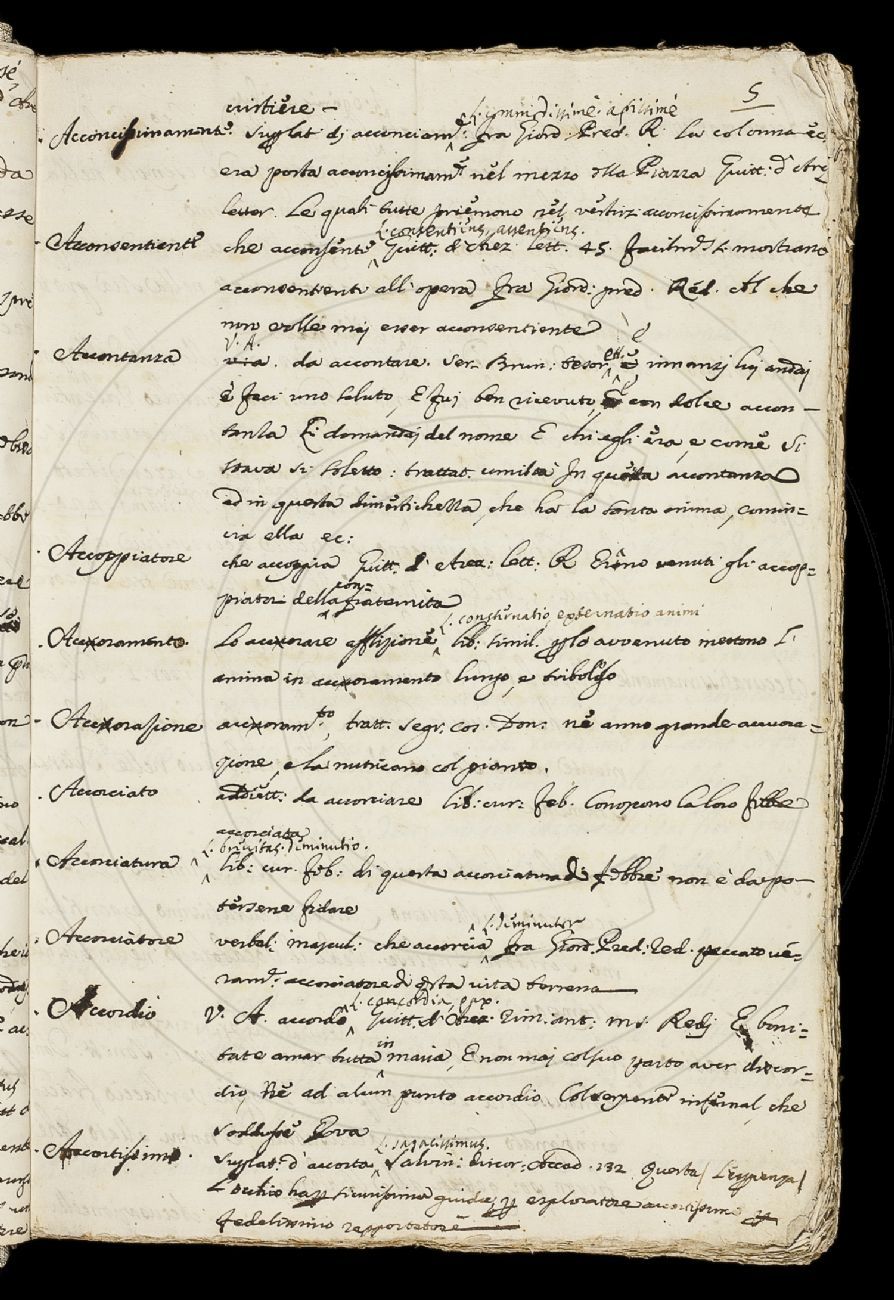 5
virtiere —
L. commodissimè. aptissimè
Acconcissimamente. Suplat. di acconciam.te: Fra Giord. Pred. R. la colonna ec.
era posta acconcissimam.te nel mezzo della Piazza Guitt. d'Are-
letter. Le quali tutte priemono nel acconcissimamente
L. consentiens, assentiens.
Aconsentiente che acconsente Guitt. d'Arez. lett. 45. mostrano
acconsentienti all'opera Fra Giord: pred. Red. Al che
non volle mai esser aconsentiente
V. A.
Acontanza da accontare. Ser. Brun: tesor. ett. e innanzi lui andai
e feci uno saluto, E fui ben ricevuto, E con dolce accon-
tanza Ei domandai del nome E chi egli era, e come si
stava sì soletto: trattat. umiltà In questa acontanza
ed in questa dimestichezza, che ha la santa anima, comin=
cia ella ec:
Accoppiatore che accoppia Guitt. d'Arez: lett: R. Erano venuti gli accop=
con=
piatori della fraternita
L. consternatio, externatio animi
Accoramento. Lo accorare afflizione, lib: simil. avvenuto mettono l'
anima in accoramento lungo, e triboloso
Accorazione accoram.to, tratt. segr. cos. Don: ne anno grande accora=
zione, e la nutricano col pianto.
Accorciato addiett: da accorciare lib: cur: feb. Conoscono la loro febbre
accorciata
L. brevitas. diminutio.
Accorciatura lib: cur. feb: di questa accorciatura di febbre non è da po-
tersene fidare
L. diminutor
Accorciatore verbal: mascul: che accorcia Fra Giord. Pred. Red. peccato ve-
ram.te accorciatore di questa vita terrena
L. concordia, pax.
Accordio V. A. accordo, Guitt. d'Arez. rim: ant: ms. Redi E boni=
in
tate amar tutta maia, E non mai col suo parto aver discor=
dio, Nè ad alcun punto accordio Col serpente infernal, che
sedusse Eva
L. sagacissimus.
Accortissimo. Suplat: d'accorto, Salvin: discor: Accad. 132 Questa/ /
L'occhio ha sicurissima guida, esploratore accortissimo
fedelissimo rapportatore